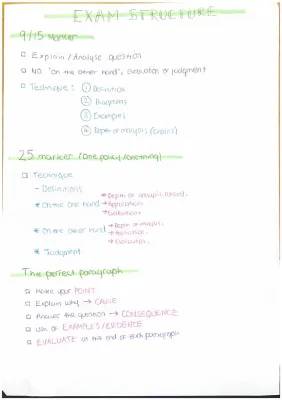 EXAM STRUCTURE
9/15 Marker
Explain/Analyse question
NO "on the other hand", evaluation or judgment
Technique: ① Definition
② Diagrams
③ Examples
④ Depth of analysis (chains)
25 marker (One policy/one thing)
Technique
- Definitions
* On the one hand → Depth of analysis
→ Application
→ Evaluation
* On the other hand → Depth of analysis.
→ Application.
→ Evaluation.
* Judgment
The perfect paragraph
Make your POINT
Explain why → CAUSE
Answer the question → CONSEQUENCE
Use of EXAMPLES/EVIDENCE
EVALUATE at the end of each paragraph